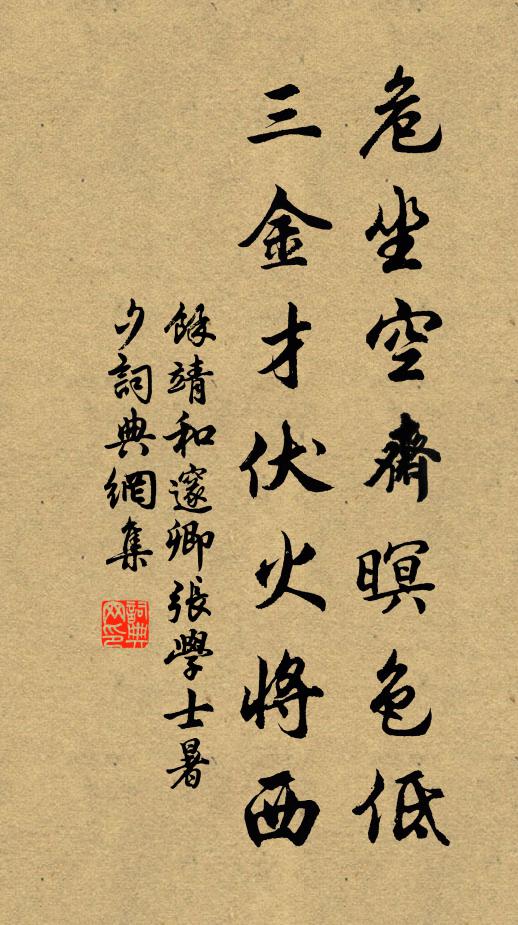 危坐空齋暝色低
三金才伏火將西
餘靖和邃卿張學士暑
夕詞典網集
詞典網印